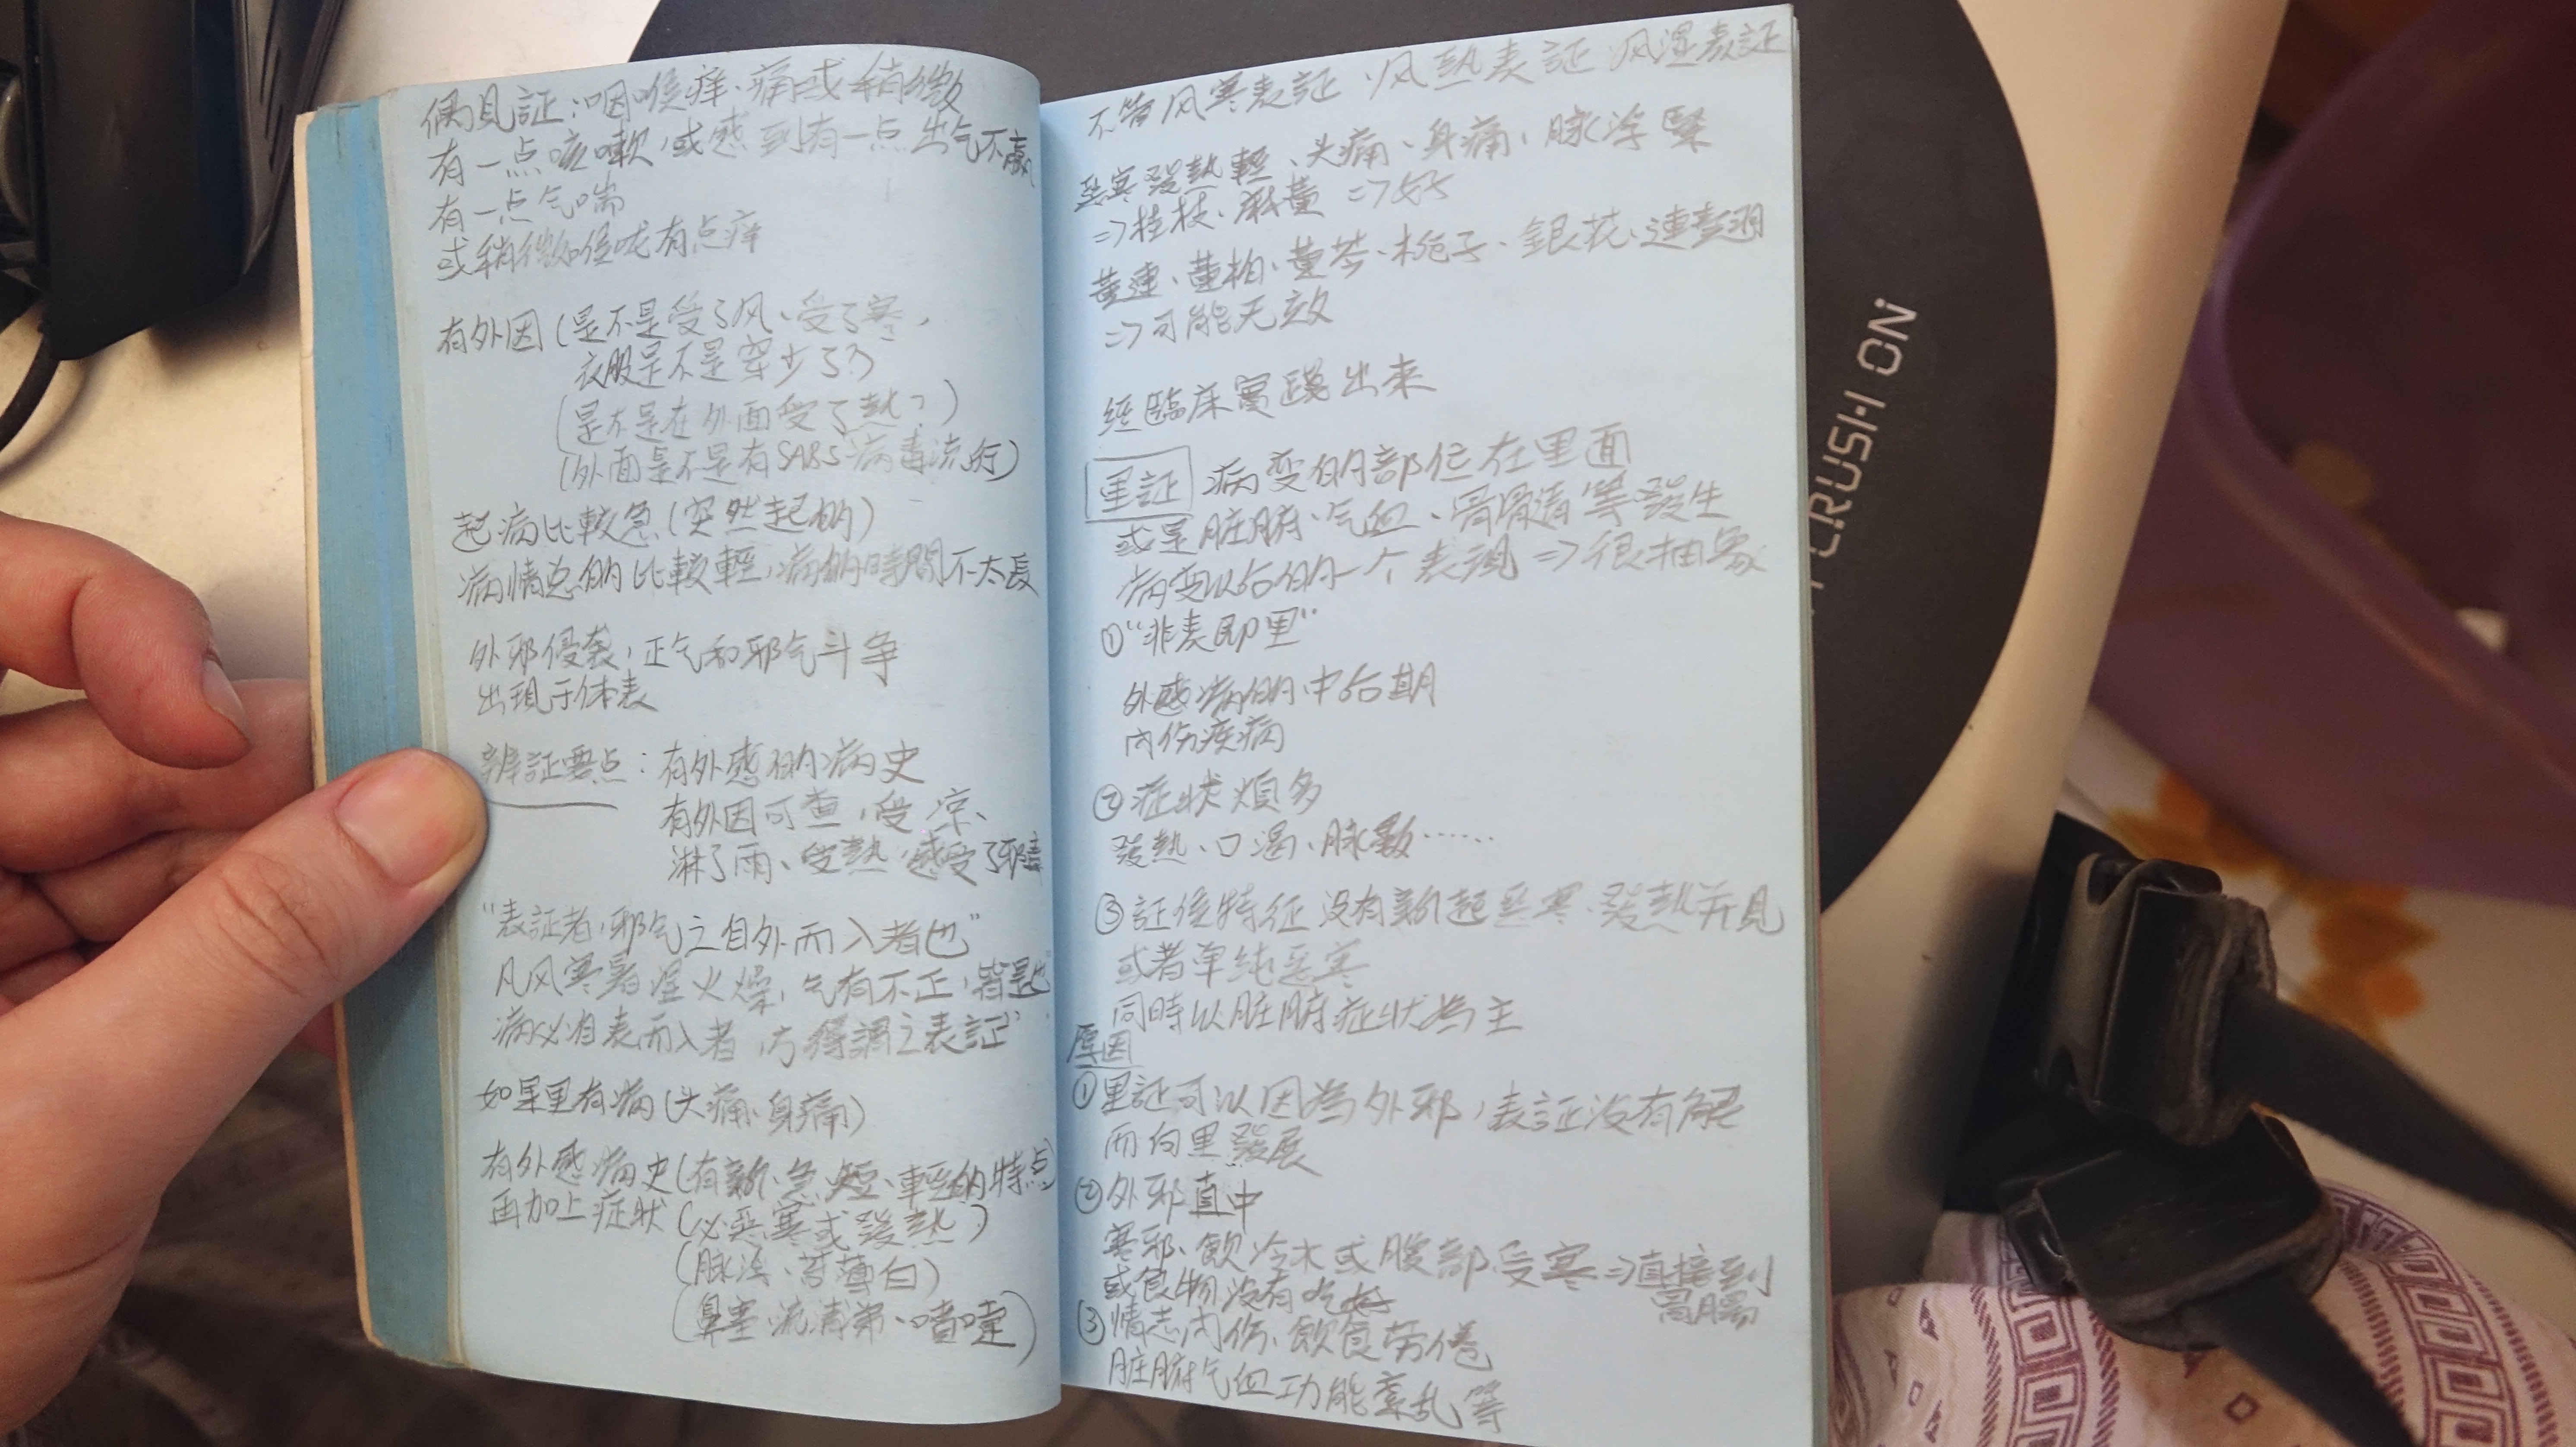 偶見証：咽喉痒、痛或稍微
有一点咳嗽，或感到有一点出气不
有一点气喘
或稍微喉咙有点痒
有外因（是不是受了风、受了寒，
衣服是不是穿少了？
（是不是在外面受了熱？）
（外面是不是有SARS病毒流行）
起病比較急（突然起的）
病情总的比較輕，病的時間不太長
外邪侵袭，正气和邪气斗争
出現于体表
辨証要点：有外感的病史
有外因可查，受凉、
淋了雨、受熱，感受了邪毒
“表証者，邪气之自外而入者也”
凡风寒暑湿火燥，气有不正，皆是也
病必自表而入者，方得謂之表証”
如果里有病（头痛、身痛）
有外感病史（有新、急、短、輕的特点）
再加上症状（必恶寒或發熱）
（脉浮、苔薄白）
（鼻塞、流清涕、噴嚏）
不管风寒表証、风熱表証 风湿表証
恶寒發熱輕、头痛、身痛、脉浮緊
⇒桂枝、麻黄 ⇒好
黄連、黄柏、黄芩、栀子、銀花、連翹
⇒可能无效
经臨床實踐出来
里証 病变的部位在里面
或是脏腑、气血、骨髓等發生
病变以后的一个表現⇒很抽象
①“非表即里”
外感病的中后期
内伤疾病
②症状煩多
發熱、口渴、脉數……
③証候特征 没有新起恶寒、發熱并見
或者单纯恶寒
同時以脏腑症状為主
原因
①里証可以因為外邪，表証没有解
而向里發展
②外邪直中
寒邪、飲冷水或腹部受寒⇒直接到
胃腸
或食物没有吃好
③情志内伤、飲食劳倦
脏腑气血功能紊乱等
CRUSH ON